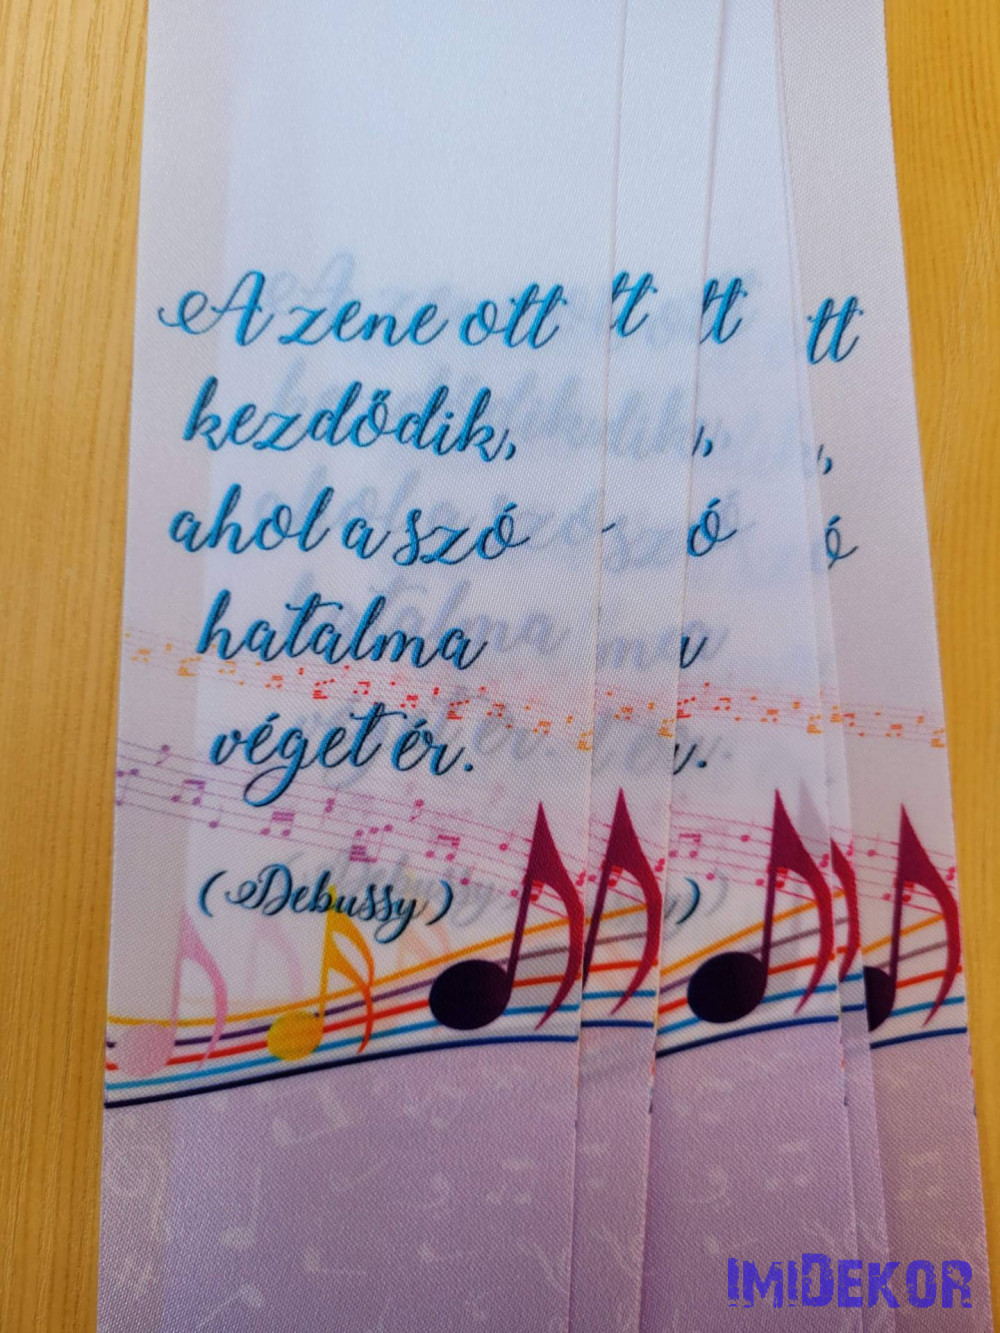 A zene ott
kezdődik,
ahol a szó
hatalma
véget ér.
(Debussy)
tt
tt
tt
,
,
ó
ó
a
.
)
IMIDEKOR